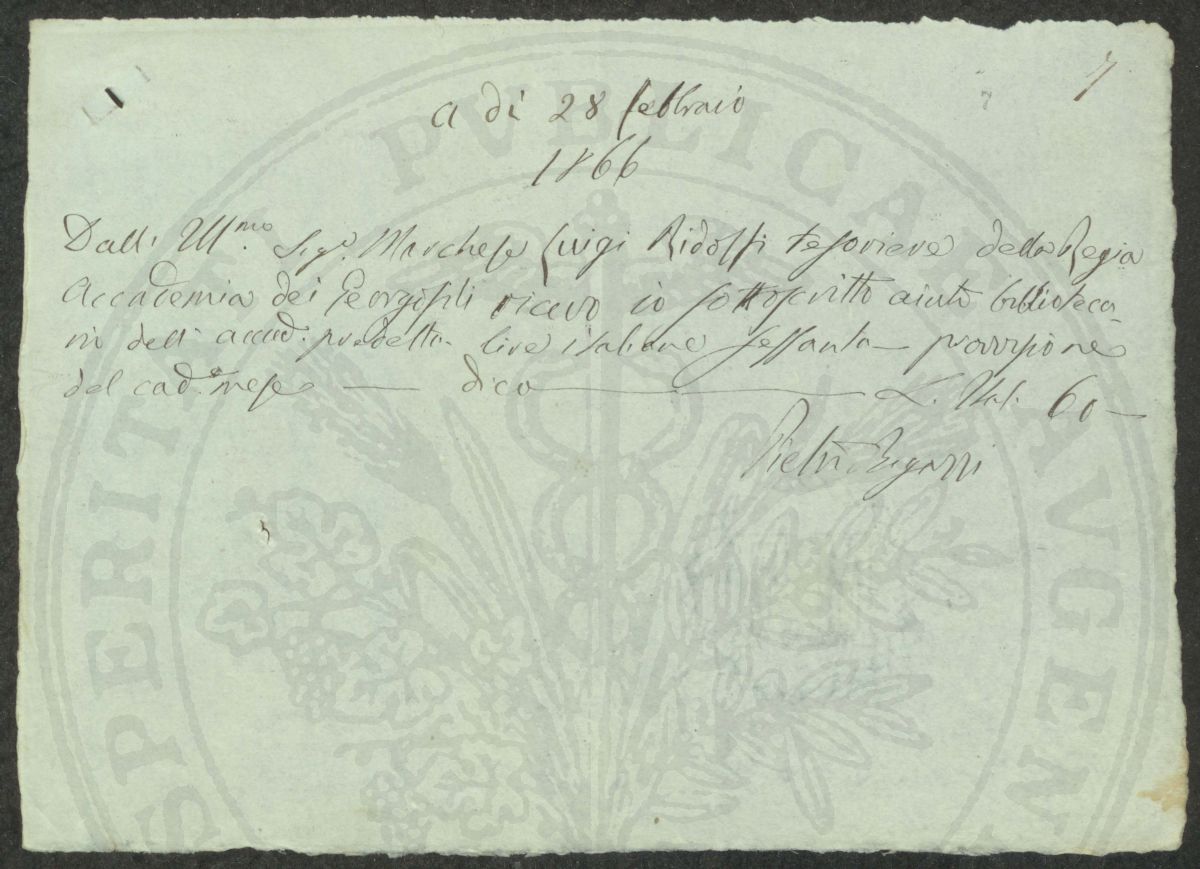 7
a dì 28 febbraio
1866
Dall' Ill.mo Sig.r Marchese Luigi Ridolfi tesoriere della Regia
Accademia dei Georgofili ricevo io sottoscritto aiuto biblioteca-
rio dell' accad. predetta lire italiane sessanta provvisione
del cad.e mese — dico — L. Ital. 60 —
Pietro Bigazzi
PUBLICAE
AUGEN
SPERITATI